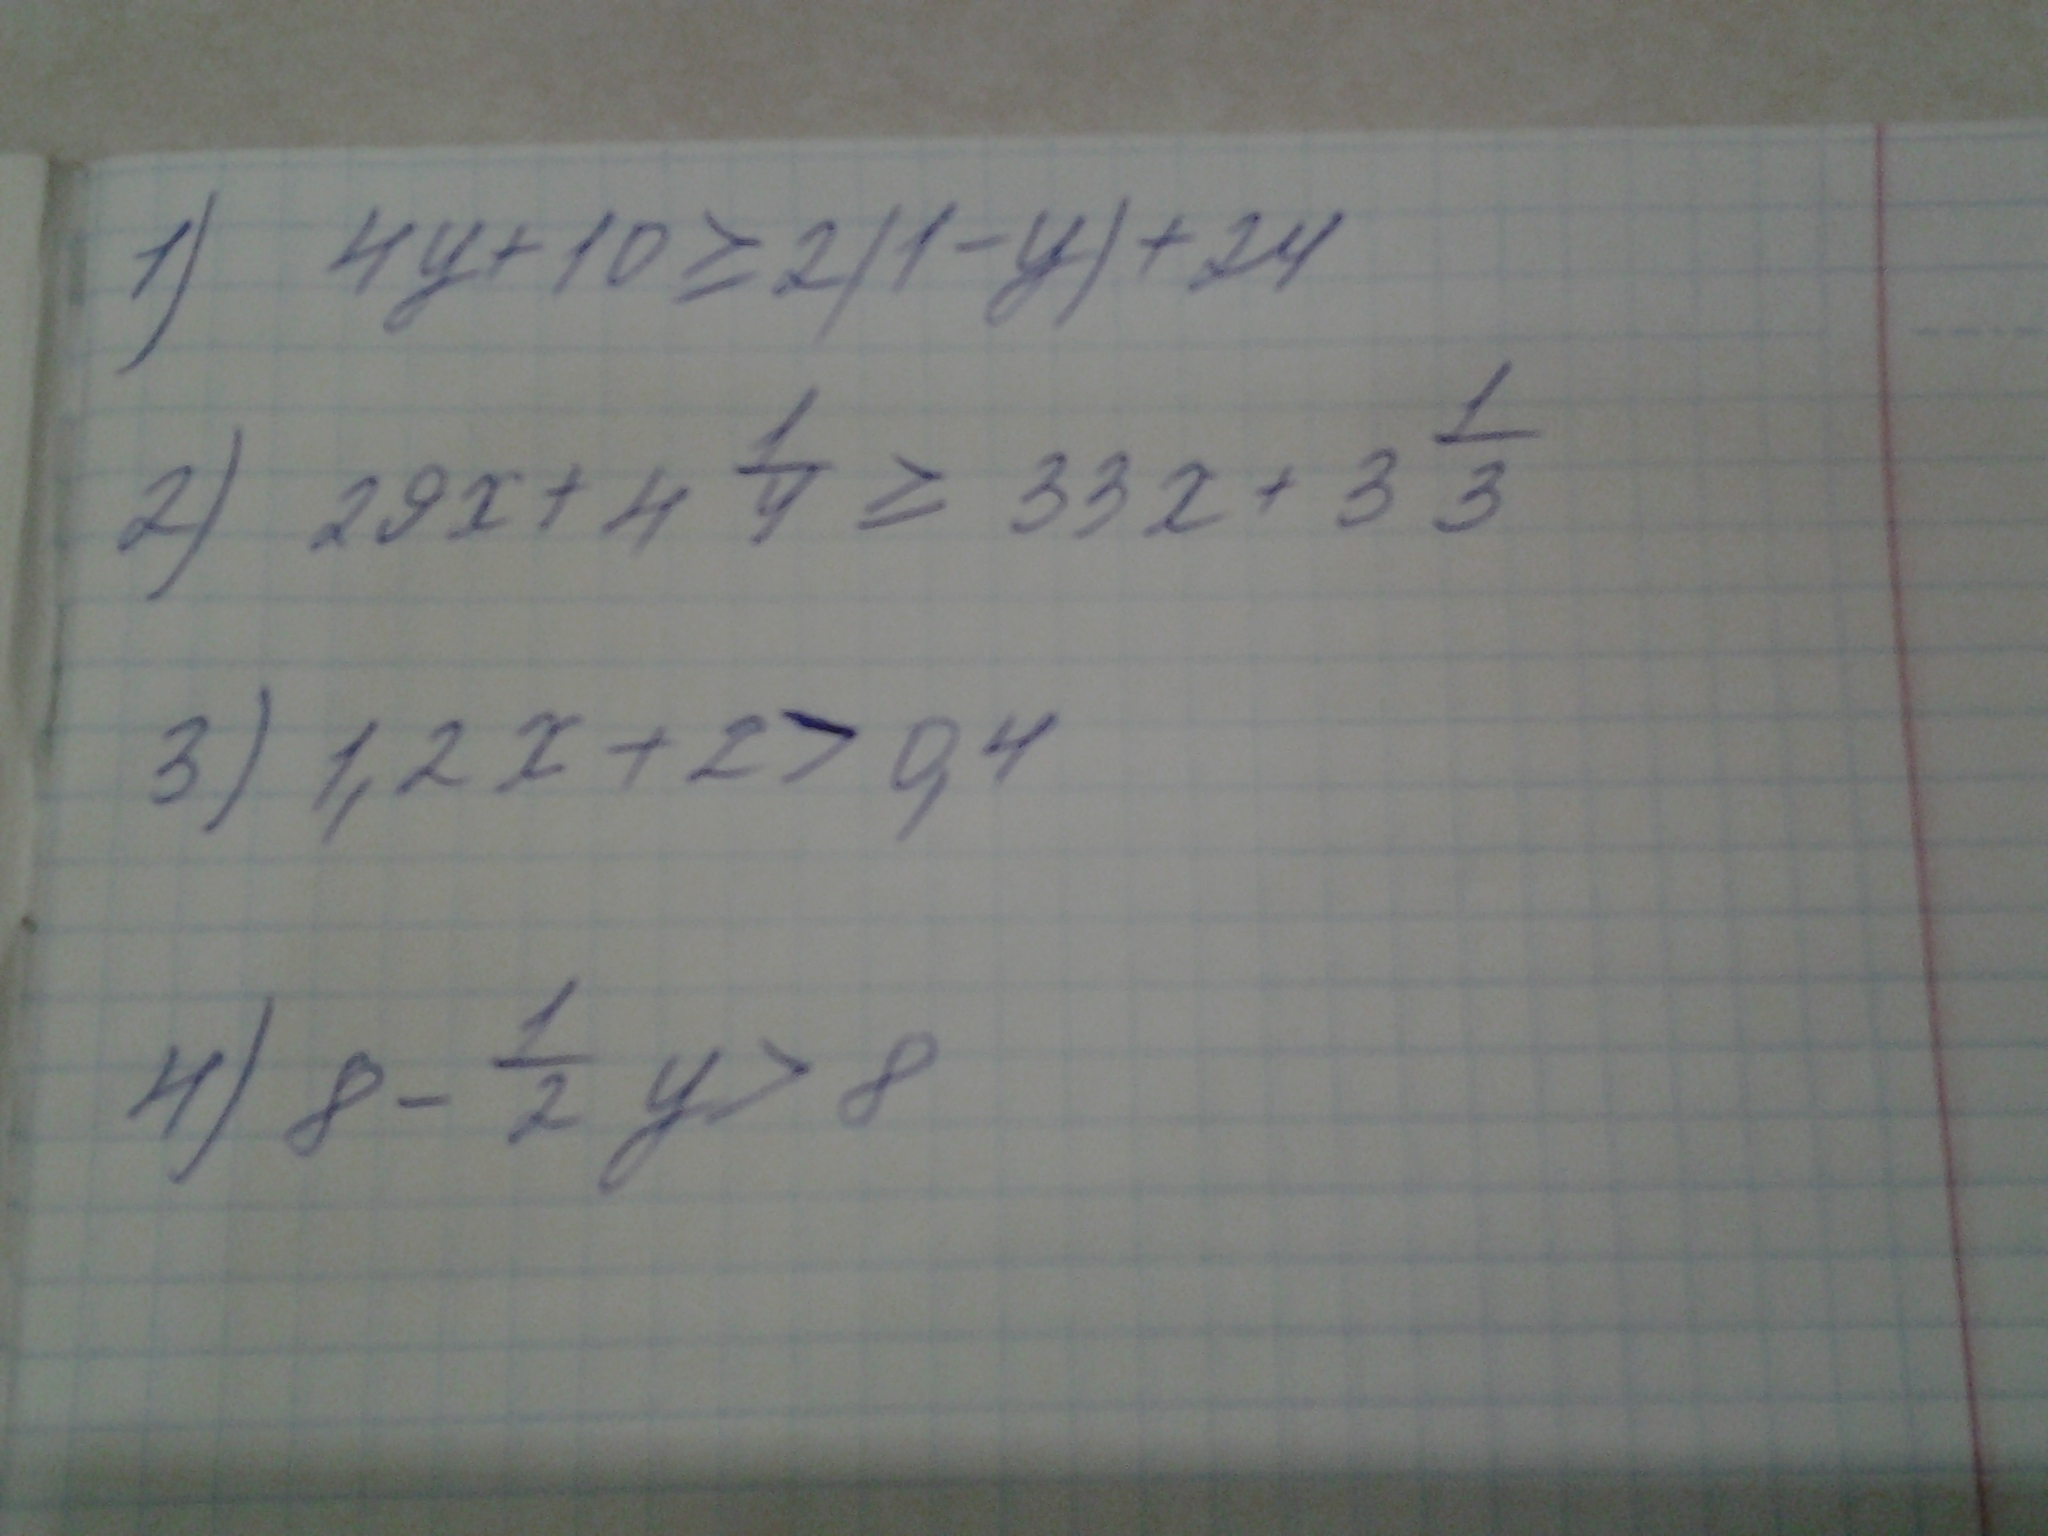 1) 4y+10≥2(1-y)+24
2) 29x+4 1/4 ≥ 33x+3 1/3
3) 1,2x+2>0,4
4) 8-1/2 y>8